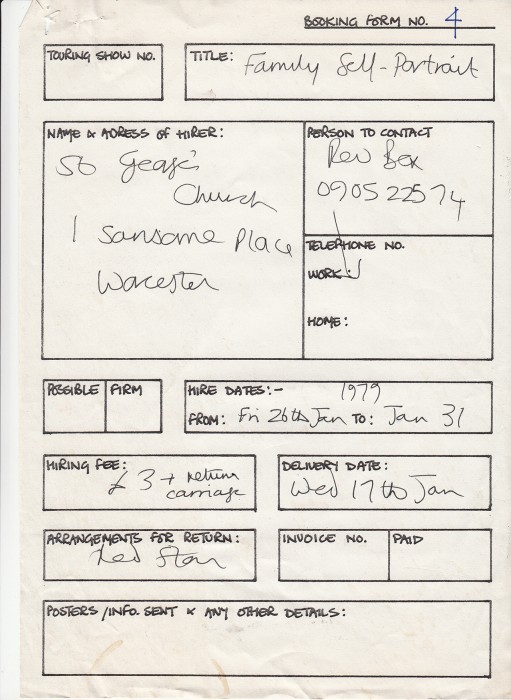 BOOKING FORM NO. 4
TOURING SHOW NO.
TITLE: Family Self-Portrait
NAME & ADRESS OF HIRER:
St George's
Church
1 Sansome Place
Worcester
PERSON TO CONTACT
Rev Bex
0905 22574
TELEPHONE NO.
WORK:
HOME:
POSSIBLE FIRM
HIRE DATES:- 1979
FROM: Fri 26th Jan TO: Jan 31
HIRING FEE:
£3 + return
carriage
DELIVERY DATE:
Wed 17th Jan
ARRANGEMENTS FOR RETURN:
Red Star
INVOICE NO. PAID
POSTERS/INFO. SENT & ANY OTHER DETAILS: